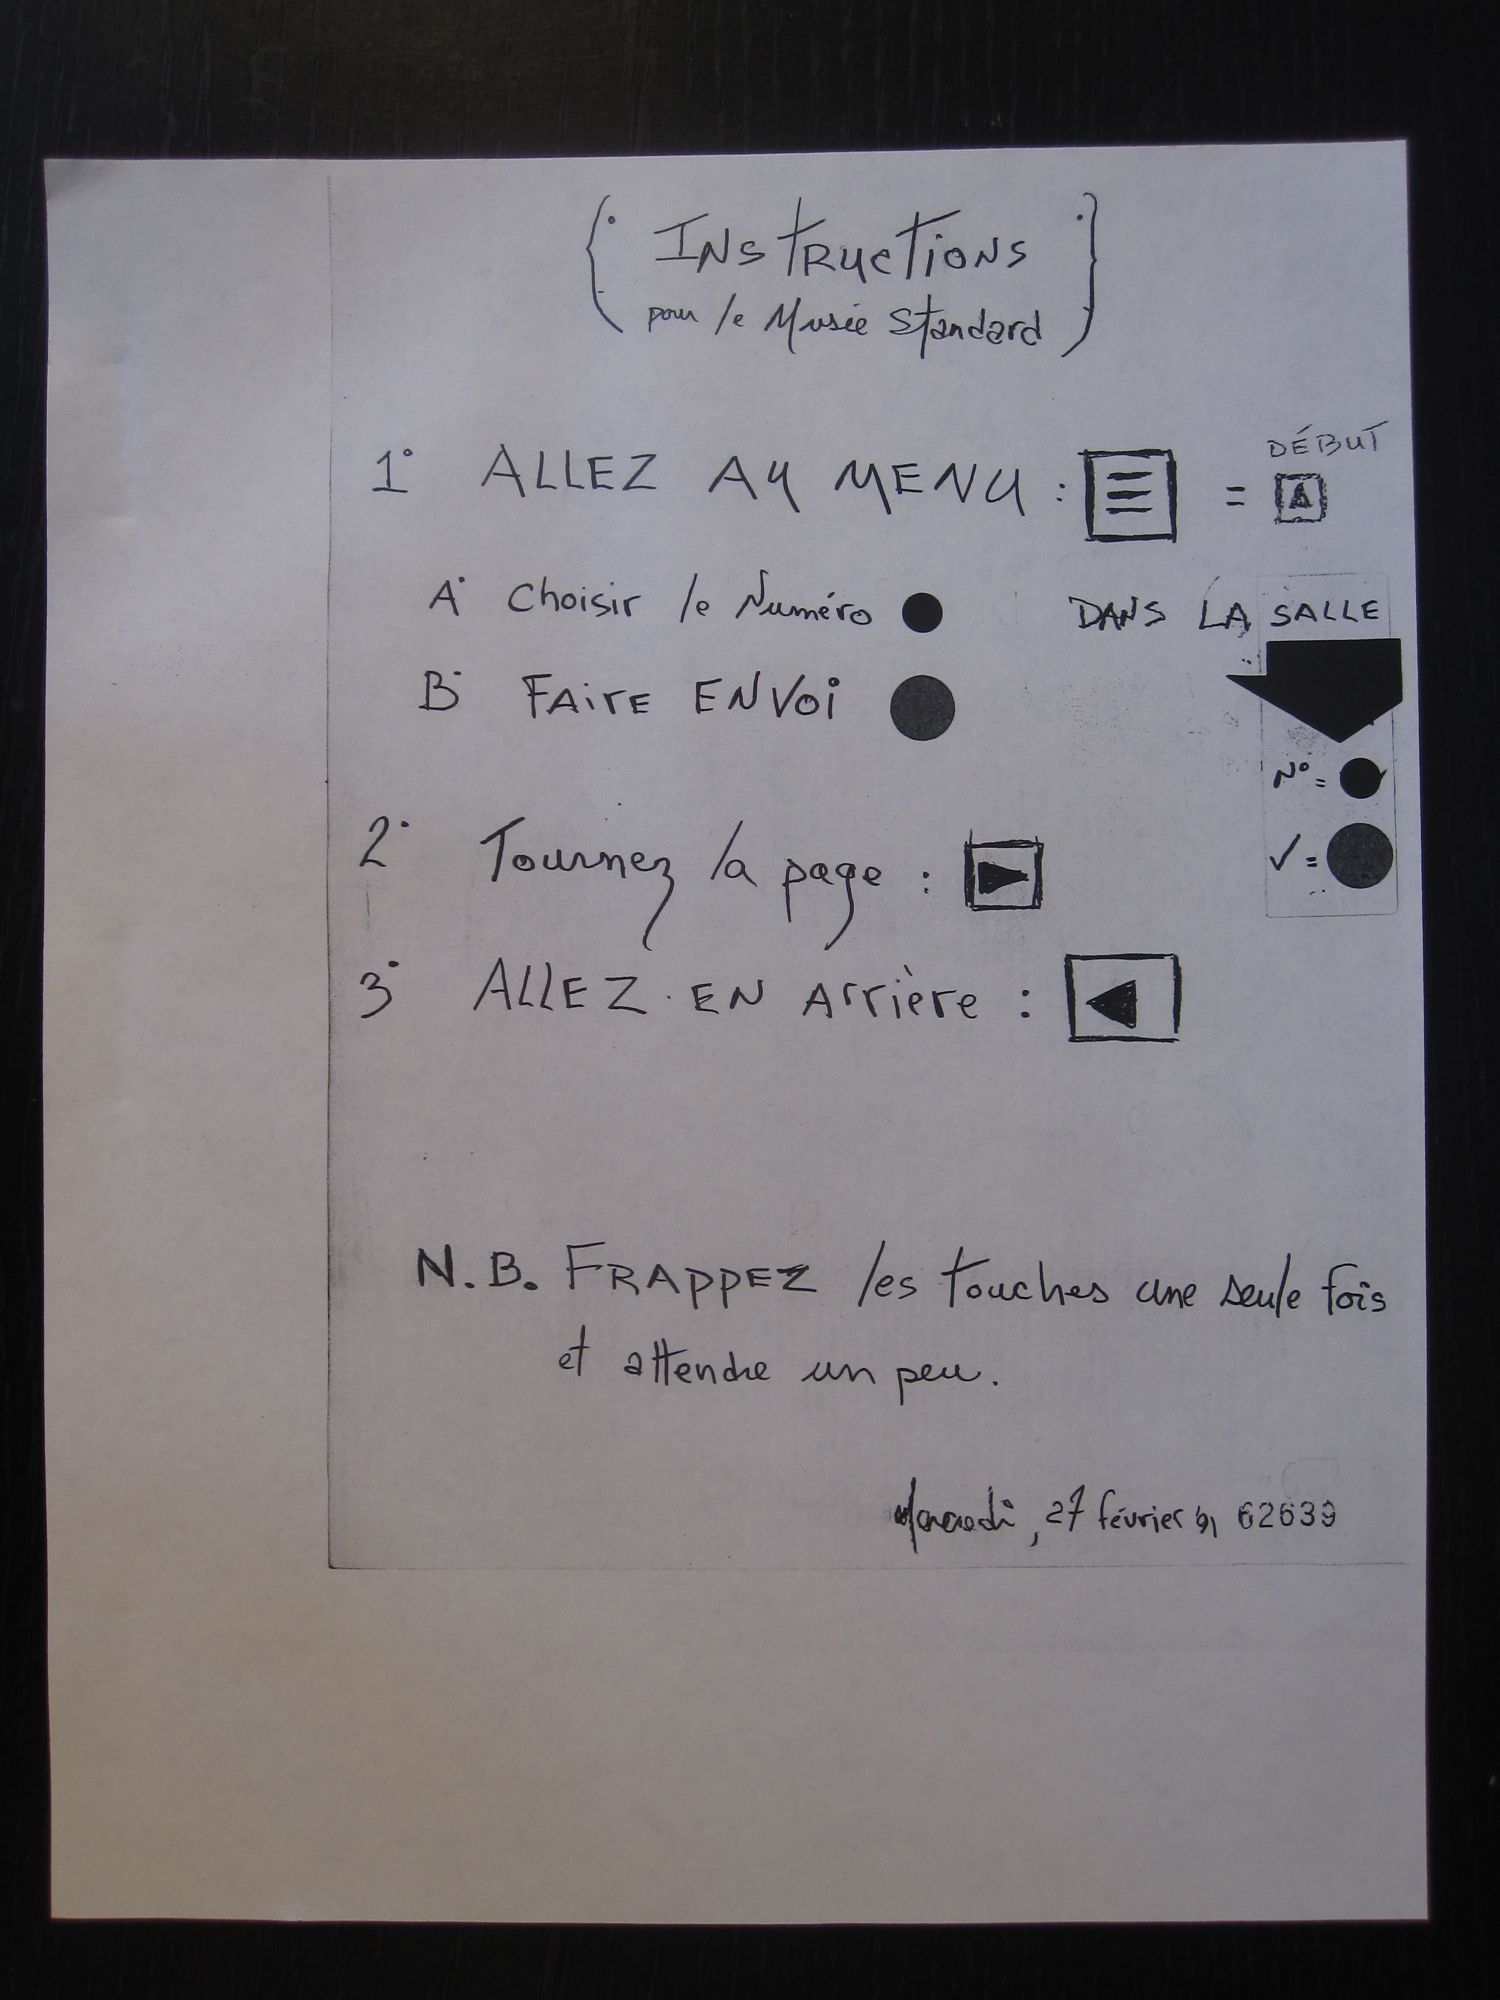 Instructions
pour le Musée Standard
1° ALLEZ AU MENU : =
DÉBUT
A
A° Choisir le Numéro
B° FAIRE ENVOI
DANS LA SALLE
N° =
✓ =
2° Tournez la page :
3° ALLEZ EN Arrière :
N.B. FRAPPEZ les touches une seule fois
et attendre un peu.
Mercredi, 27 février 91 62639